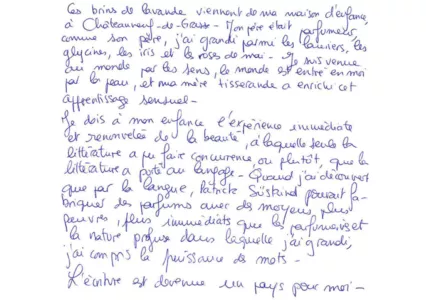 Ces brins de lavande viennent de ma maison d'enfance,
à Châteauneuf-de-Grasse - Mon père était parfumeur,
comme son père, j'ai grandi parmi les lauriers, les
glycines, les iris et les roses de mai - Je suis venue
au monde par les sens, le monde est entré en moi
par la peau, et ma mère tisserande a enrichi cet
apprentissage sensuel -
Je dois à mon enfance l'expérience immédiate
et renouvelée de la beauté, à laquelle seule la
littérature a pu faire concurrence, ou plutôt, que la
littérature a porté au langage - Quand j'ai découvert
que par la langue, Patrick Süskind pouvait fa-
briquer des parfums avec des moyens plus
pauvres, plus immédiats que les parfumeurs et
la nature profuse dans laquelle j'ai grandi,
j'ai compris la puissance des mots -
L'écriture est devenue un pays pour moi -